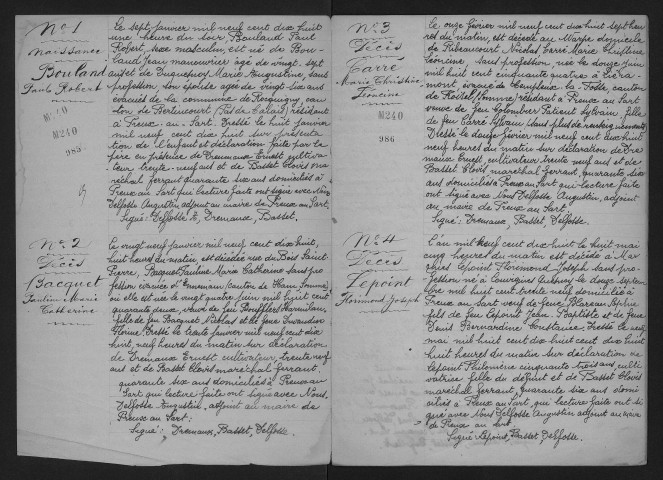 No 1
Naissance
Bouland
Paul Robert
M240
986
Le sept janvier mil neuf cent dix huit
une heure du soir Bouland Paul
Robert, sexe masculin, est né de Bou-
land Jean manœuvrier âgé de vingt sept
ans et de Marie Augustine, sans
profession, son épouse âgée de vingt six ans
évacués de la commune de Rocquigny, can-
ton de Bertincourt (Pas de Calais) résidant
à Preux-au-Sart. Dressé le huit janvier
mil neuf cent dix huit sur présenta-
tion de l'enfant et déclaration faite par le
père en présence de Dremaux Ernest cultiva-
teur trente-neuf ans et de Basset Clovis ma-
réchal ferrant quarante six ans domiciliés à
Preux au Sart qui lecture faite ont signé avec Nous
Delfosse Augustin adjoint au maire de Preux au Sart.
Signé: Delfosse, Dremaux, Basset.
No 2
Décès
Bacquet
Pauline Marie
Catherine
Le vingt neuf janvier mil neuf cent dix huit,
huit heures du matin, est décédée rue du Bois Saint
Pierre, Bacquet Pauline Marie Catherine sans pro-
fession évacuée d' (canton de Ham Somme)
où elle est née le vingt quatre juin mil huit cent
quarante deux, veuve de feu
fille de feu Bacquet Nicolas et de feue
Dressé le trente janvier mil neuf cent dix
huit, neuf heures du matin sur déclaration
de Dremaux Ernest cultivateur, trente neuf
ans et de Basset Clovis maréchal ferrant,
quarante six ans domiciliés à Preux au
Sart qui lecture faite ont signé avec Nous.
Delfosse Augustin, adjoint au maire de
Preux au Sart:
Signé: Dremaux, Basset, Delfosse.
No 3
Décès
Carré
Marie Christine
Léoncine
M240
986
Le onze février mil neuf cent dix huit sept heu-
res du matin, est décédée au domicile
de Ribeaucourt Nicolas Carré Marie Christine
Léoncine, sans profession, née le douze juin
mil huit cent cinquante quatre à
évacuée de canton
de (Somme) résidant à Preux au Sart
veuve de feu Colombier Patient Sylvain, fille de
feu Carré Sylvain
Dressé le douze février mil neuf cent dix huit
neuf heures du matin sur déclaration de Dre-
maux Ernest, cultivateur trente neuf ans et de
Basset Clovis maréchal ferrant, quarante six
ans domiciliés à Preux au Sart qui lecture faite
ont signé avec Nous Delfosse Augustin, adjoint
au maire de Preux au Sart.
Signé: Dremaux, Basset, Delfosse.
No 4
Décès
Lepoint
Florimond Joseph
L'an mil neuf cent dix huit le huit mai
cinq heures du matin est décédé à
Lepoint Florimond Joseph sans pro-
fession né à le
mil huit cent trente neuf domicilié à
Preux au Sart veuf de feue
fils de feu Lepoint Jean Baptiste et de feue
Bernardine Constance. Dressé le neuf
mai mil huit cent dix huit cent dix huit
huit heures du matin sur déclaration de
Lepoint Philomène cinquante trois ans culti-
vatrice fille du défunt et de Basset Clovis
maréchal ferrant, quarante six ans domi-
ciliés à Preux au Sart, qui lecture faite ont si-
gné avec Nous Delfosse Augustin adjoint au maire
de Preux au Sart.
Signé Lepoint, Basset, Delfosse.